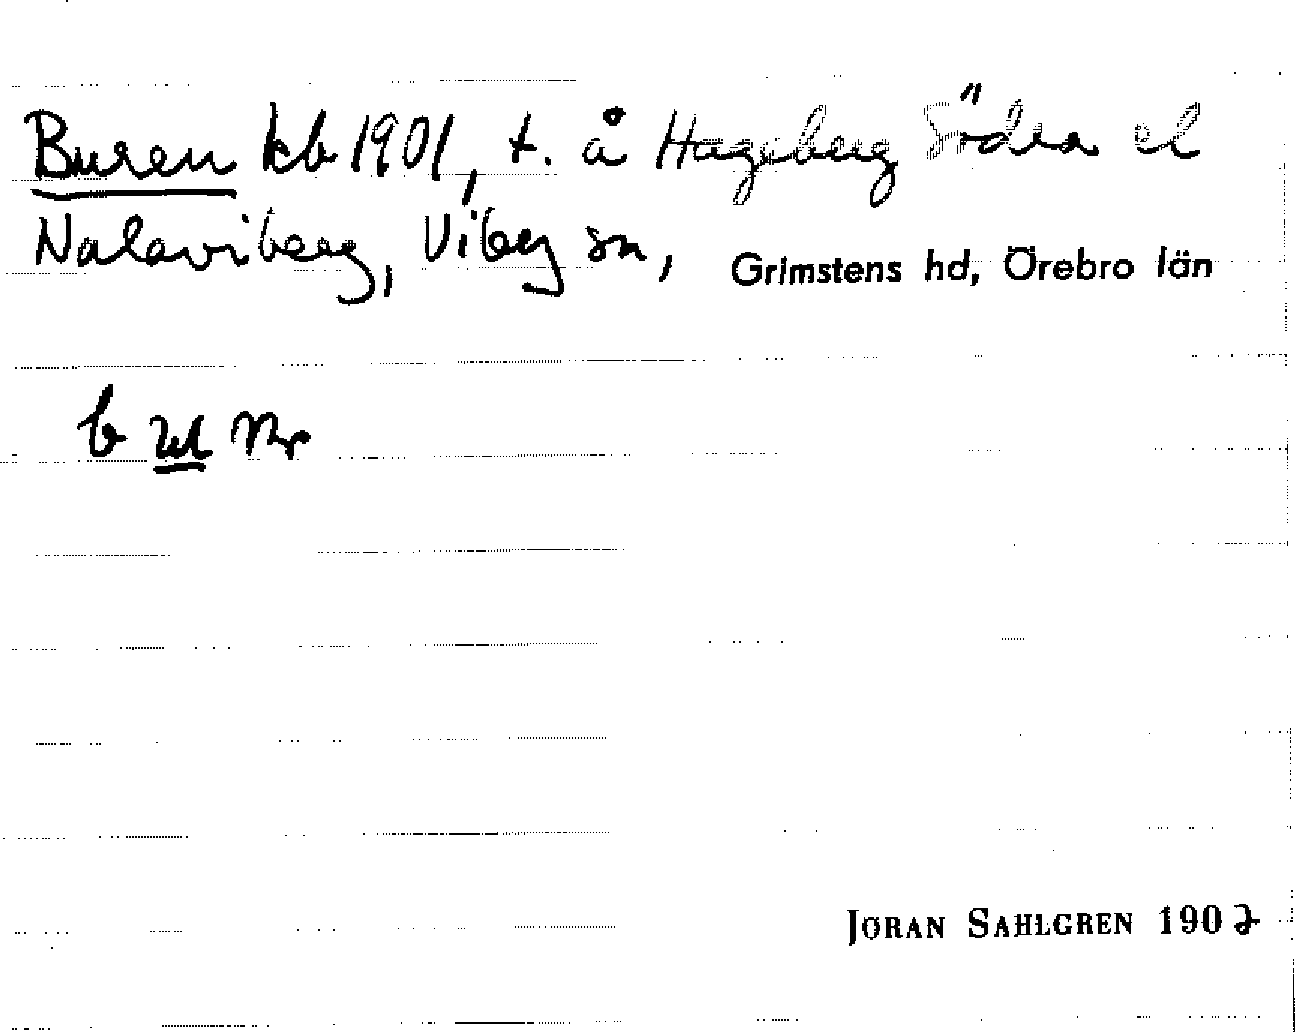 Buren kb 1901, t. å Hageberg Södra el
Nalaviberg, Viby sn, Grimstens hd, Örebro län
b
JÖRAN SAHLGREN 1907